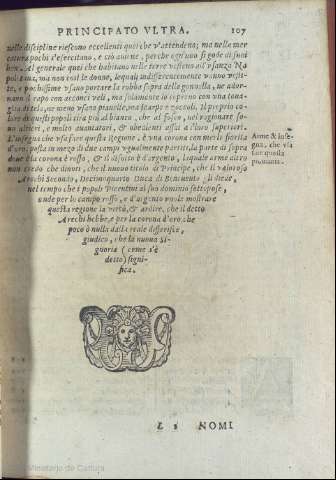 PRINCIPATO VLTRA. 107
nelle discipline riescono eccellenti quei che v'attendono; ma nelle mer
catura pochi s'esercitano, e ciò auiene, perche ogn'uno si gode di suoi
beni. Al generale quei che habitano nelle terre vestono all'vsanza Na
politana, ma non così le donne, lequali indifferentemente vanno vesti-
te, e pochissime vsano portare la robba sopra della gonnella, ne ador
nano il capo con acconci veli, ma solamente lo coprono con vna touа-
glia di tela, ne meno vsano pianelle, ma scarpe, e zoccoli. Il proprio co
lore di questi popoli tira più al bianco, che al fosco, nel ragionare so-
no altieri, e molto auantatori, & obedienti assai a' suoi superiori.
L'insegna che vsa fare questa Regione, è vna corona con merli fiorita
d'oro, posta in mezo di due campi vgualmente partiti, la parte di sopra
doue è la corona è rosso, & il disotto è d'argento, lequale arme altro
non credo che dinoti, che il nuouo titolo di Principe, che il valoroso
Arechi Secondo, Decimoquarto Duca di Beneuento si diede,
nel tempo che i popoli Picentini al suo dominio sottopose,
onde per lo campo rosso, e d'argento vuole mostrare
questa regione la virtù, & ardire, che il detto
Arechi hebbe, e per la corona d'oro, che
poco ò nulla dalla reale differisce,
giudico, che la nuoua Si-
gnoria (come s'è
detto) signi-
fica.
Arme & inse
gna, che vsa
far questa
prouincia.
L 2 NOMI
Ministerio de Cultura